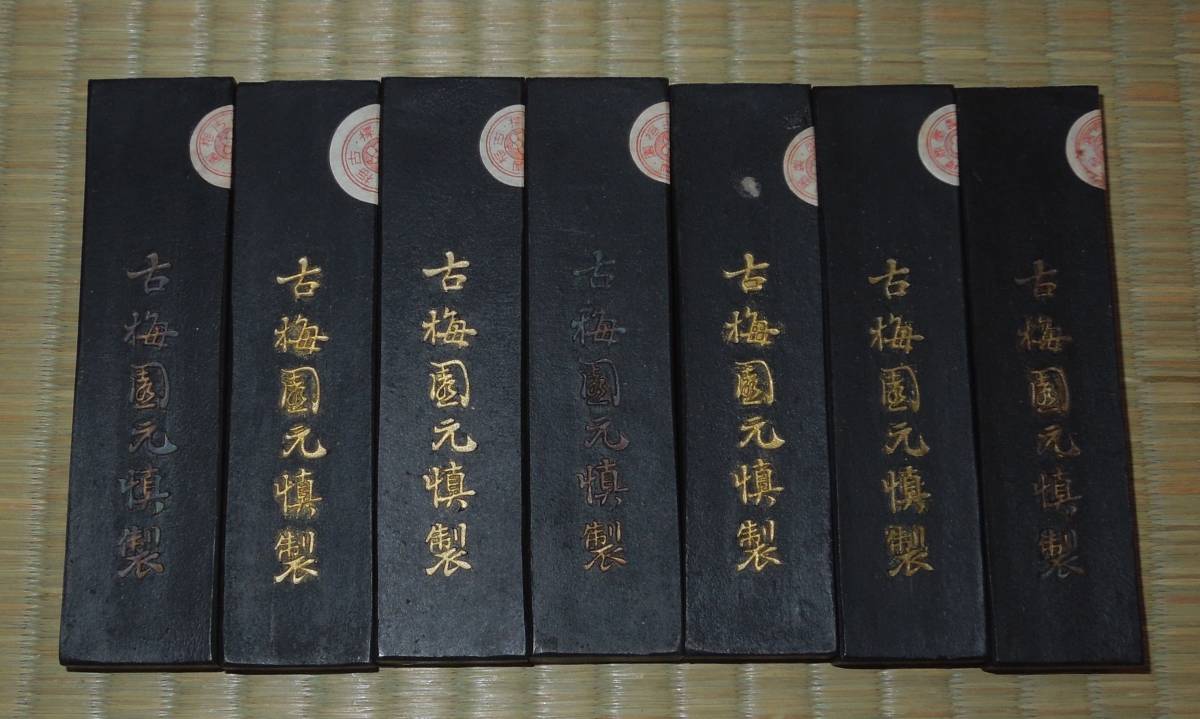 古梅園元慎製
古梅園元慎製
古梅園元慎製
古梅園元慎製
古梅園元慎製
古梅園元慎製
古梅園元慎製